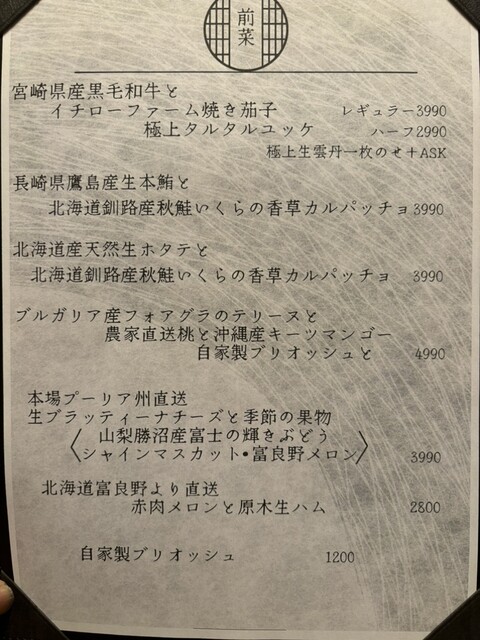 前菜
宮崎県産黒毛和牛と
イチローファーム焼き茄子 レギュラー3990
極上タルタルユッケ ハーフ2990
極上生雲丹一枚のせ+ASK
長崎県鷹島産生本鮪と
北海道釧路産秋鮭いくらの香草カルパッチョ 3990
北海道産天然生ホタテと
北海道釧路産秋鮭いくらの香草カルパッチョ 3990
ブルガリア産フォアグラのテリーヌと
農家直送桃と沖縄産キーツマンゴー
自家製ブリオッシュと 4990
本場プーリア州直送
生ブラッティーナチーズと季節の果物
〈山梨勝沼産富士の輝きぶどう
シャインマスカット・富良野メロン〉 3990
北海道富良野より直送
赤肉メロンと原木生ハム 2800
自家製ブリオッシュ 1200